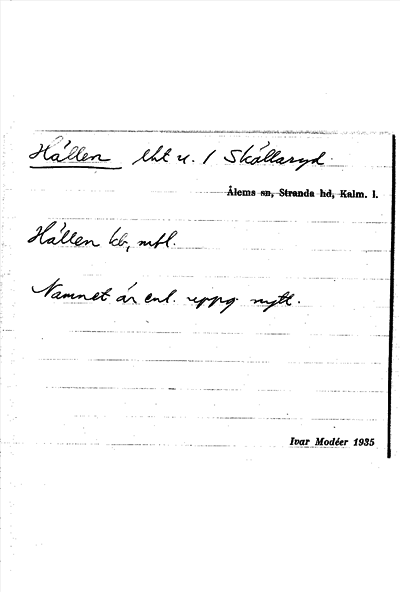 Hällen lht u. / Skällaryd.
Ålems sn, Stranda hd, Kalm. l.
Hällen kb, mtl.
Namnet är enl. uppg. nytt.
Ivar Modéer 1935